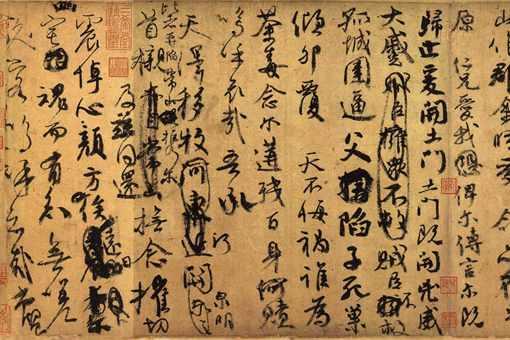 山作郡余時受命亦在平
原仁兄愛我俾爾傳言爾既
歸止爰開土門土門既開凶威
大蹙賊臣擁眾不救賊臣不救
孤城圍逼父陷子死巢
傾卵覆天不悔禍誰為
荼毒念爾遘殘百身何贖
嗚乎哀哉吾承
天澤移牧河關泉明
比者再陷常山攜爾
首櫬及茲同還撫念摧切
震悼心顏方俟遠日
宅魂而有知無嗟
久客嗚呼哀哉尚饗